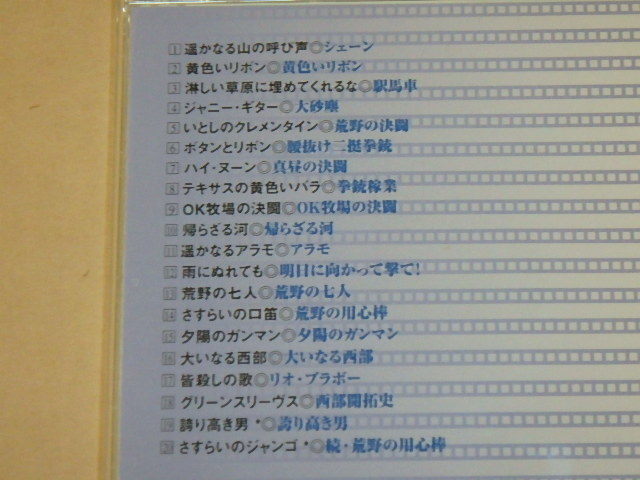 1 遥かなる山の呼び声◎シェーン
2 黄色いリボン◎黄色いリボン
3 淋しい草原に埋めてくれるな◎駅馬車
4 ジャニー・ギター◎大砂塵
5 いとしのクレメンタイン◎荒野の決闘
6 ボタンとリボン◎腰抜け二挺拳銃
7 ハイ・ヌーン◎真昼の決闘
8 テキサスの黄色いバラ◎拳銃稼業
9 OK牧場の決闘◎OK牧場の決闘
10 帰らざる河◎帰らざる河
11 遥かなるアラモ◎アラモ
12 雨にぬれても◎明日に向かって撃て!
13 荒野の七人◎荒野の七人
14 さすらいの口笛◎荒野の用心棒
15 夕陽のガンマン◎夕陽のガンマン
16 大いなる西部◎大いなる西部
17 皆殺しの歌◎リオ・ブラボー
18 グリーンスリーヴス◎西部開拓史
19 誇り高き男 *◎誇り高き男
20 さすらいのジャンゴ *◎続・荒野の用心棒